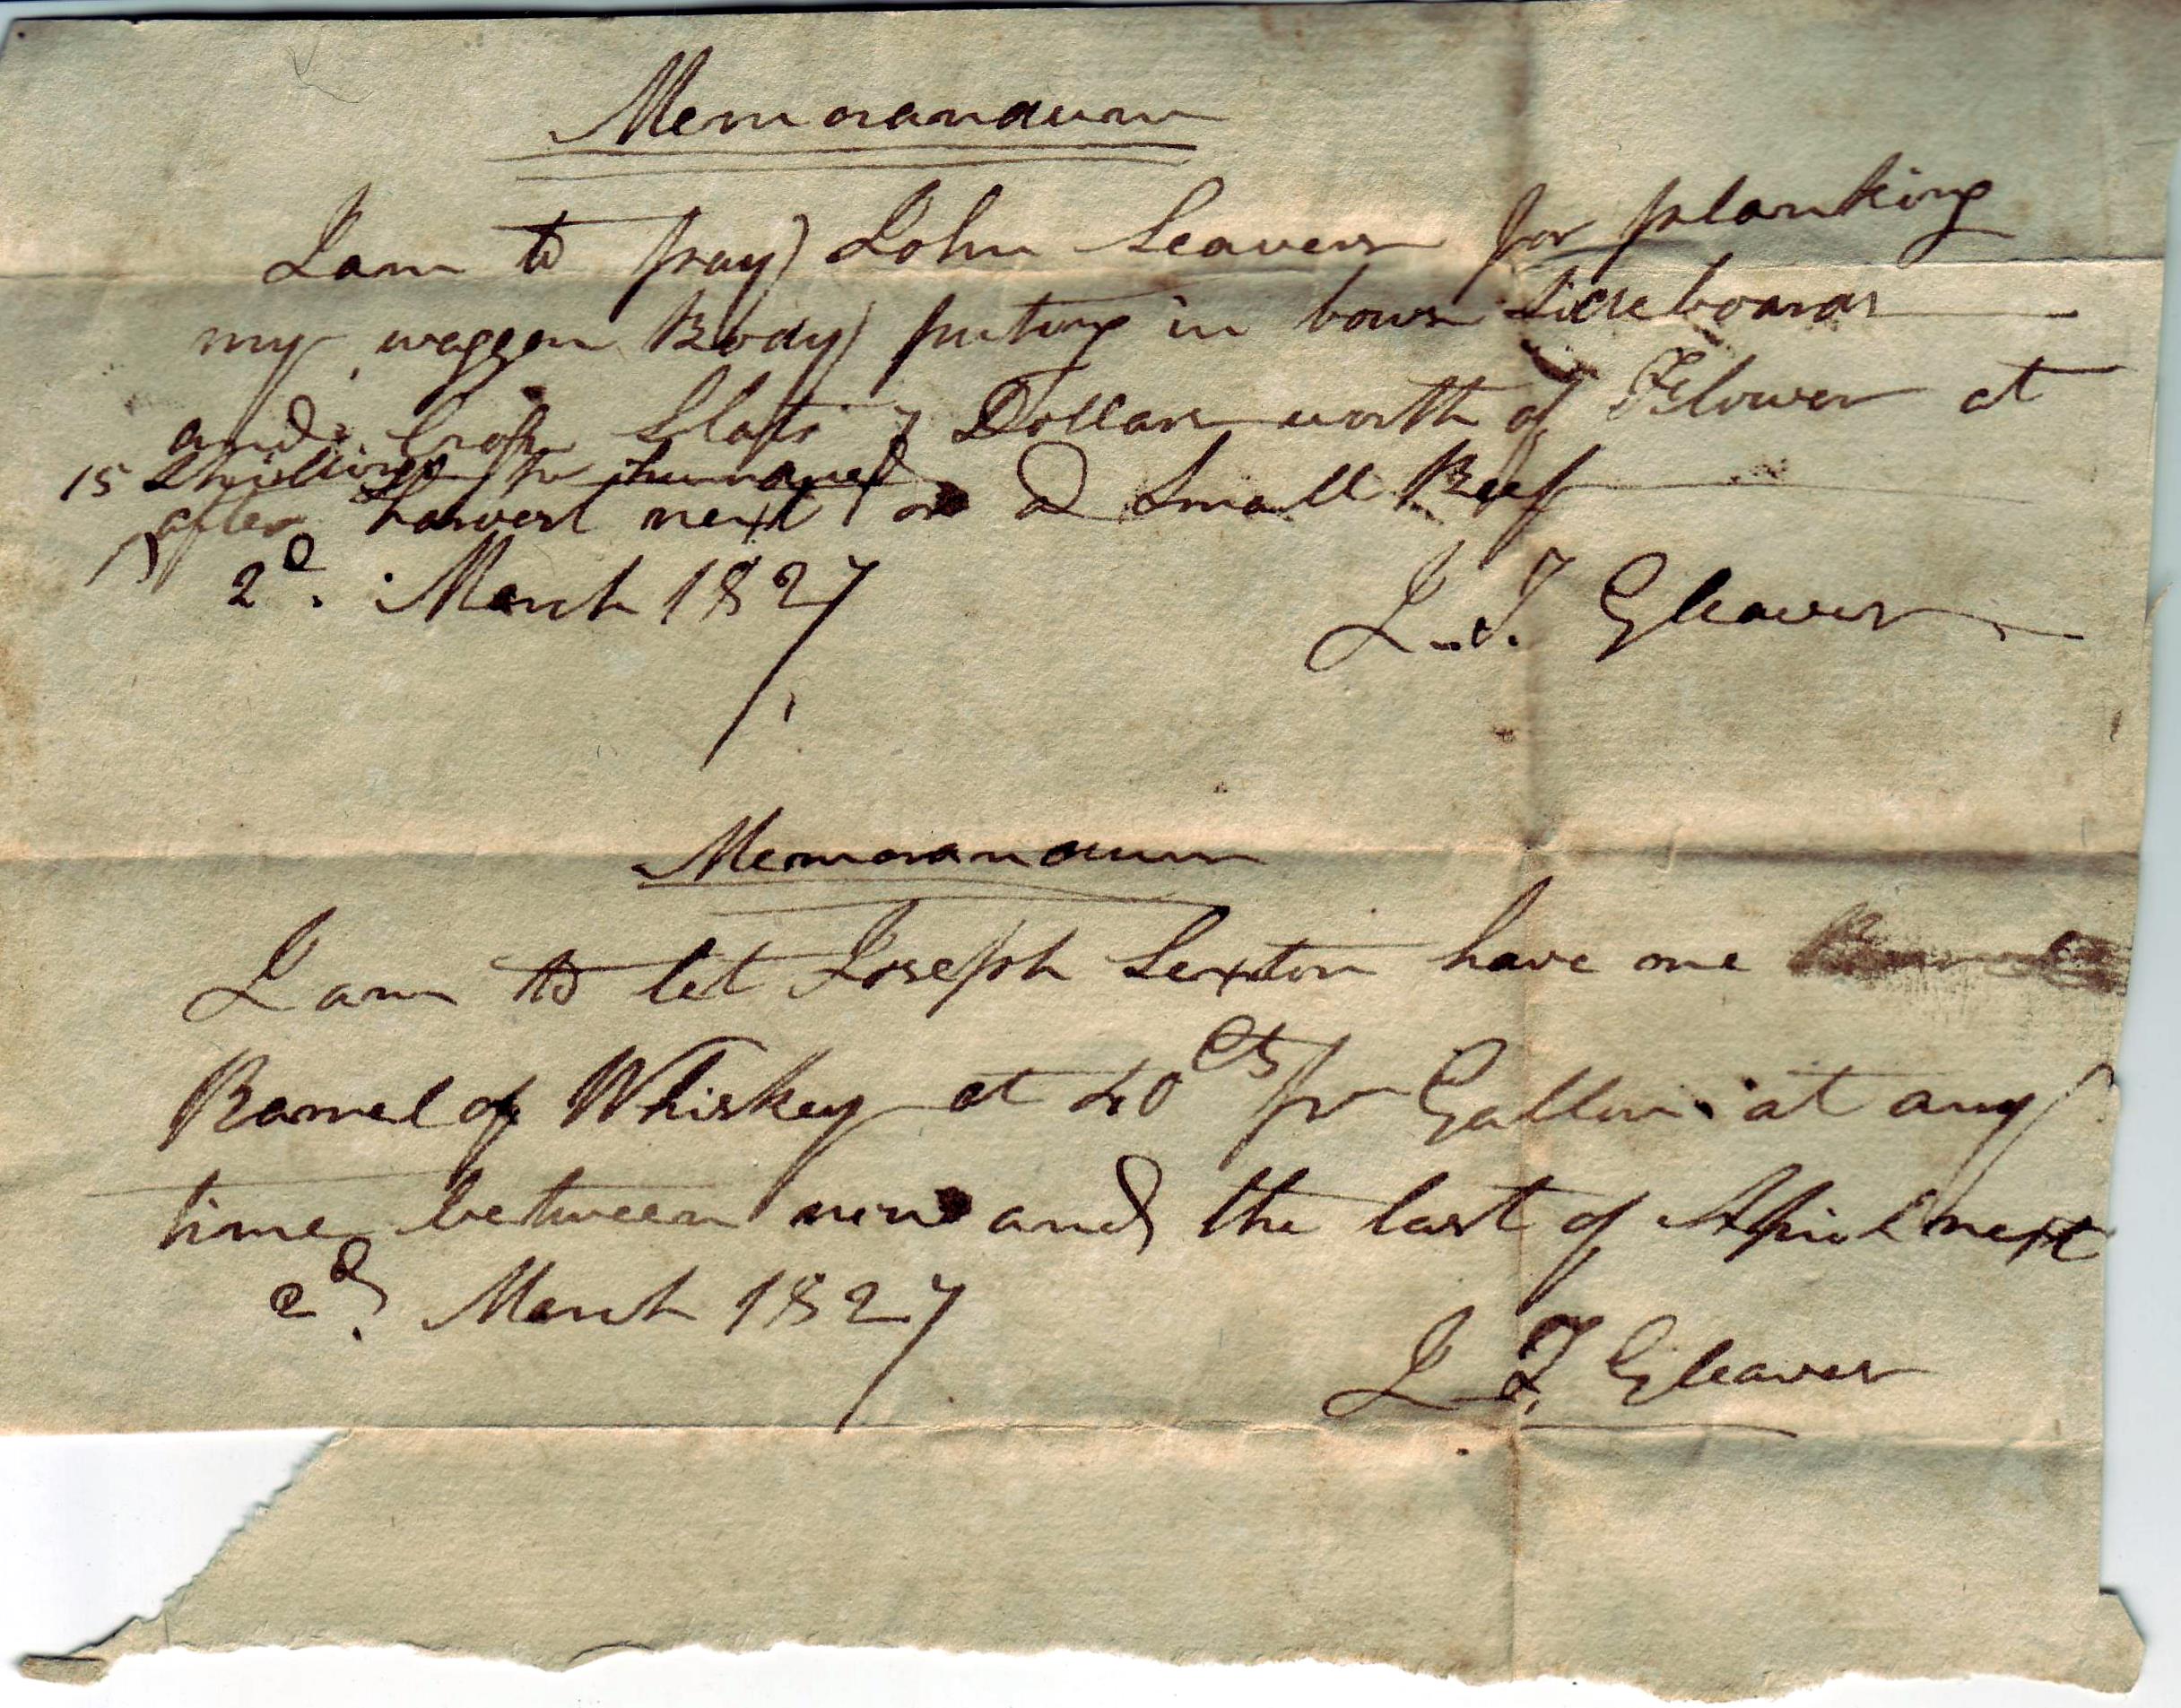 Memorandum
I am to pay John Seaver for planking
my waggen Body puting in bows Sideboards
and Crop Slats 7 Dollars worth of Flower at
15 Shillings pr hundred
after harvest next or a Small Beef
2d. March 1827 L. T. Gleaver
Memorandum
I am to let Joseph Sexton have one
Barrel of Whiskey at 40 Cts pr Gallon at any
time between now and the last of April next
2d. March 1827
L T. Gleaver